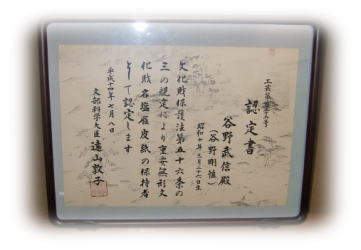 認定書
谷野武信殿
(谷野剛惟)
昭和十年三月二十六日生
文化財保護法第五十六条の
三の規定により重要無形文
化財名塩雁皮紙の保持者
として認定します
平成十四年七月八日
文部科学大臣 遠山敦子